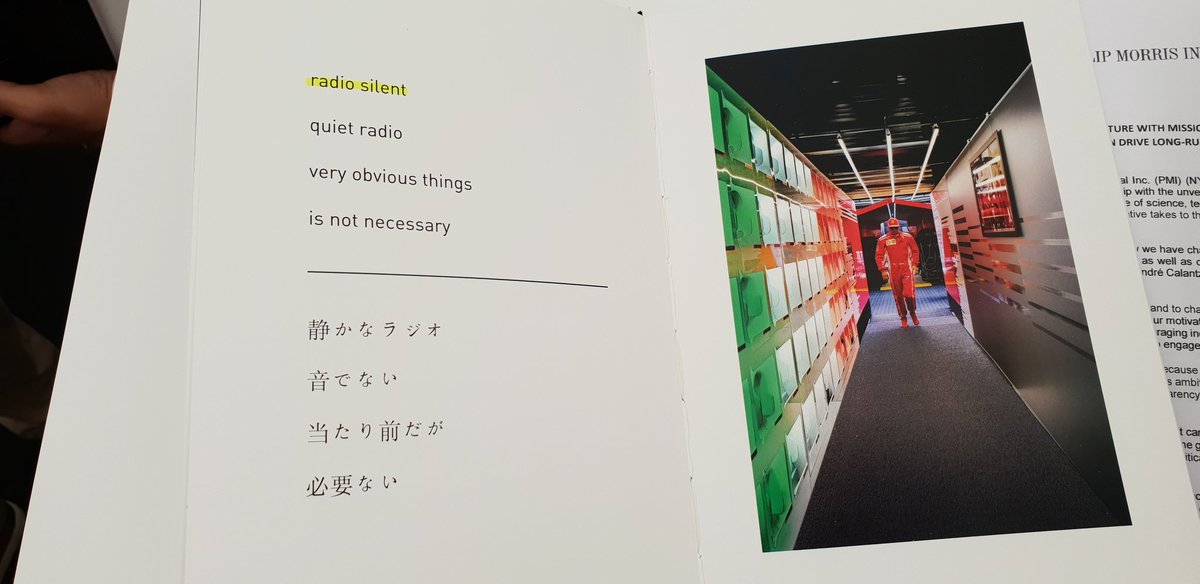 radio silent
quiet radio
very obvious things
is not necessary
静かなラジオ
音でない
当たり前だが
必要ない
LIP MORRIS IN
TURE WITH MISSIO
N DRIVE LONG-RU
al Inc. (PMI) (NY
ip with the unve
e of science, te
ative takes to th
we have cha
as well as c
ndré Calant
and to cha
ur motivat
raging in
engage
ecause
s ambit
arency
t can
ne g
itical